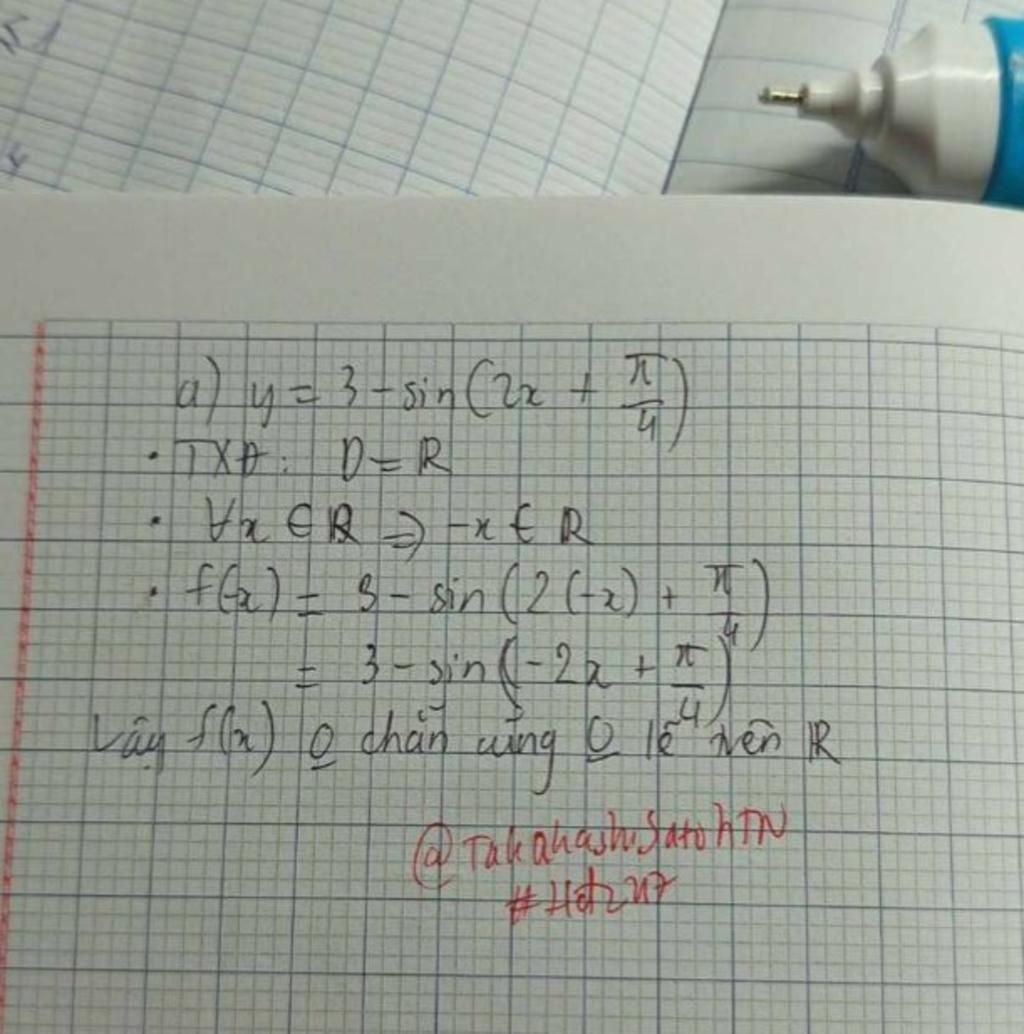 a) y = 3 - sin(2x + π/4)
• TXĐ: D = ℝ
• ∀x ∈ ℝ ⇒ -x ∈ ℝ
• f(-x) = 3 - sin(2(-x) + π/4)
= 3 - sin(-2x + π/4)
Vậy f(x) o̲ chẵn cũng o̲ lẻ trên ℝ
@TakahashiSatohTN